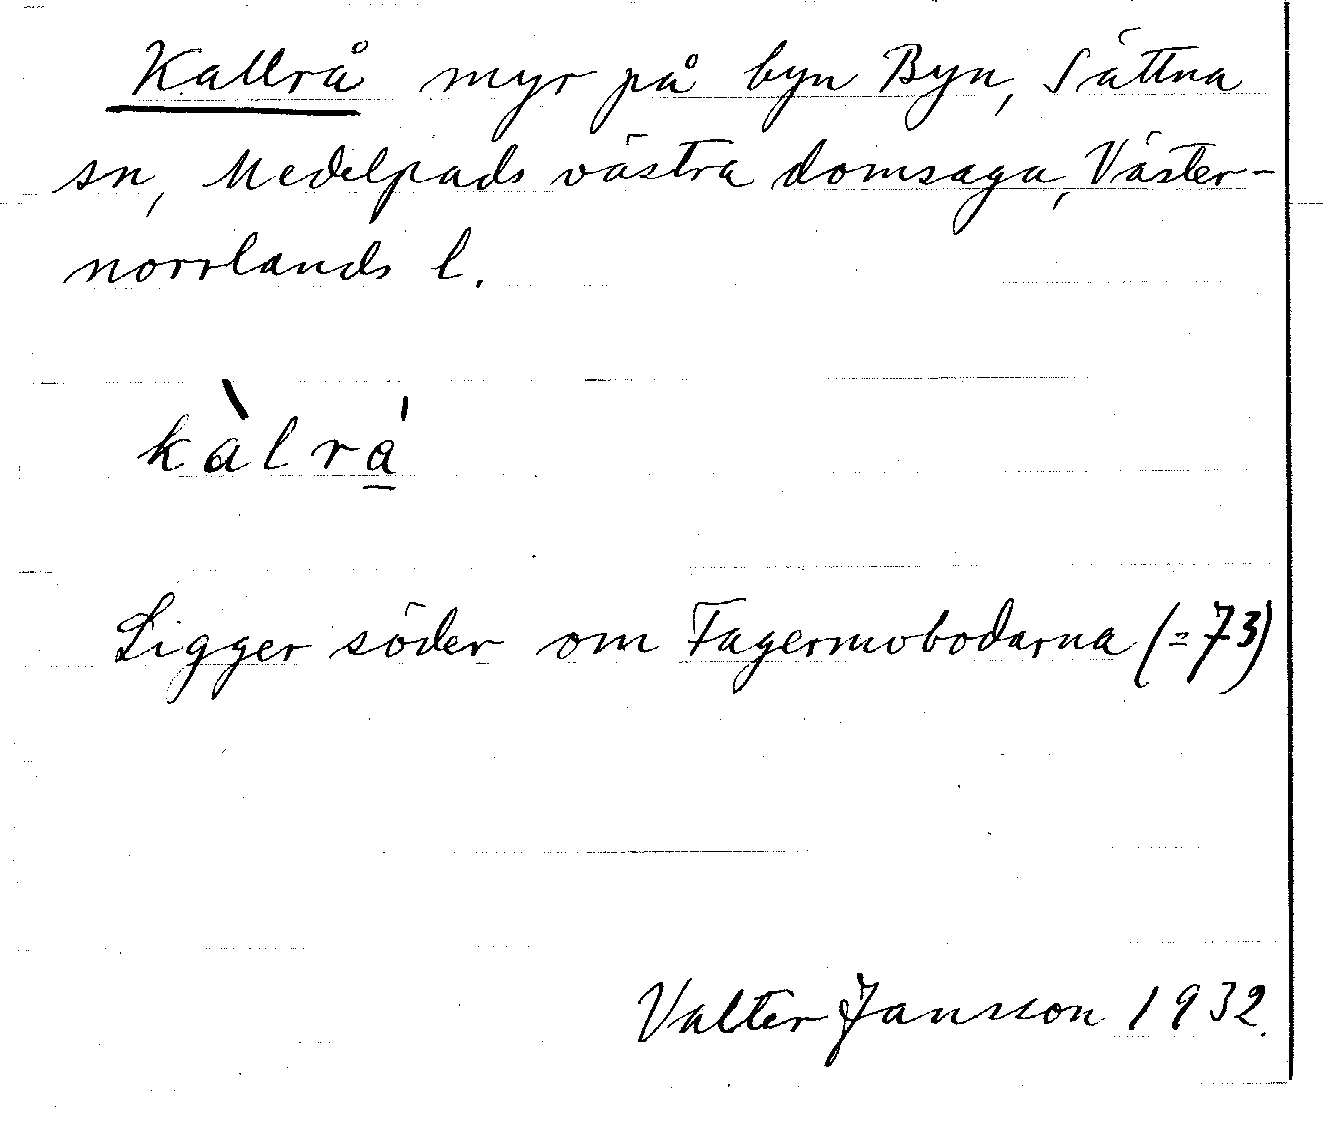 Kallrå myr på byn Byn, Sättna
sn, Medelpads västra domsaga, Väster-
norrlands l.
kàlrá̱
Ligger söder om Fagermobodarna (=73)
Valter Jansson 1932.